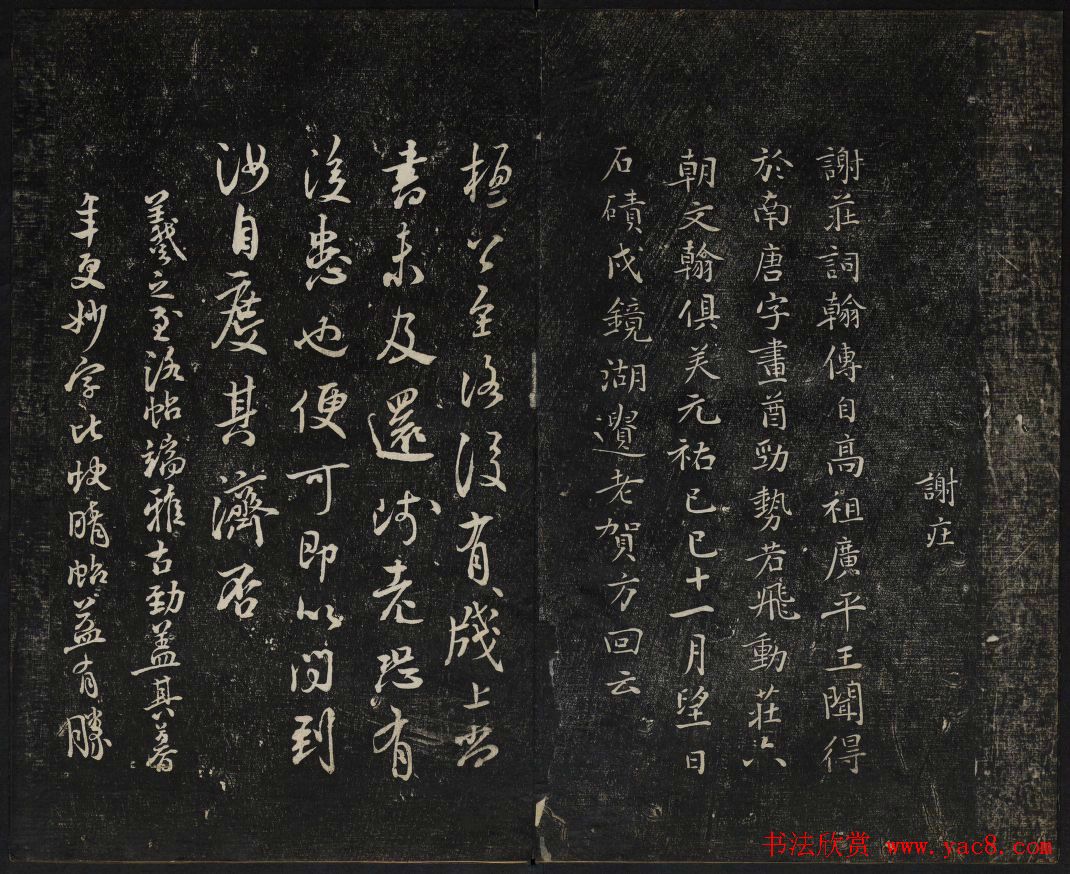 謝莊
謝莊詞翰傳自高祖廣平王聞得
於南唐字畫酋勁勢若飛動莊六
朝文翰俱美元祐己巳十一月望日
石磧戍鏡湖遺老賀方回云
桓公至洛後有牋上當
書未及還陟老恐有
後患也便可即以問到
汝自度其濟否
羲之至洛帖端雅古勁蓋其暮
年更妙字比快晴帖益有勝
书法欣赏 www.yac8.com